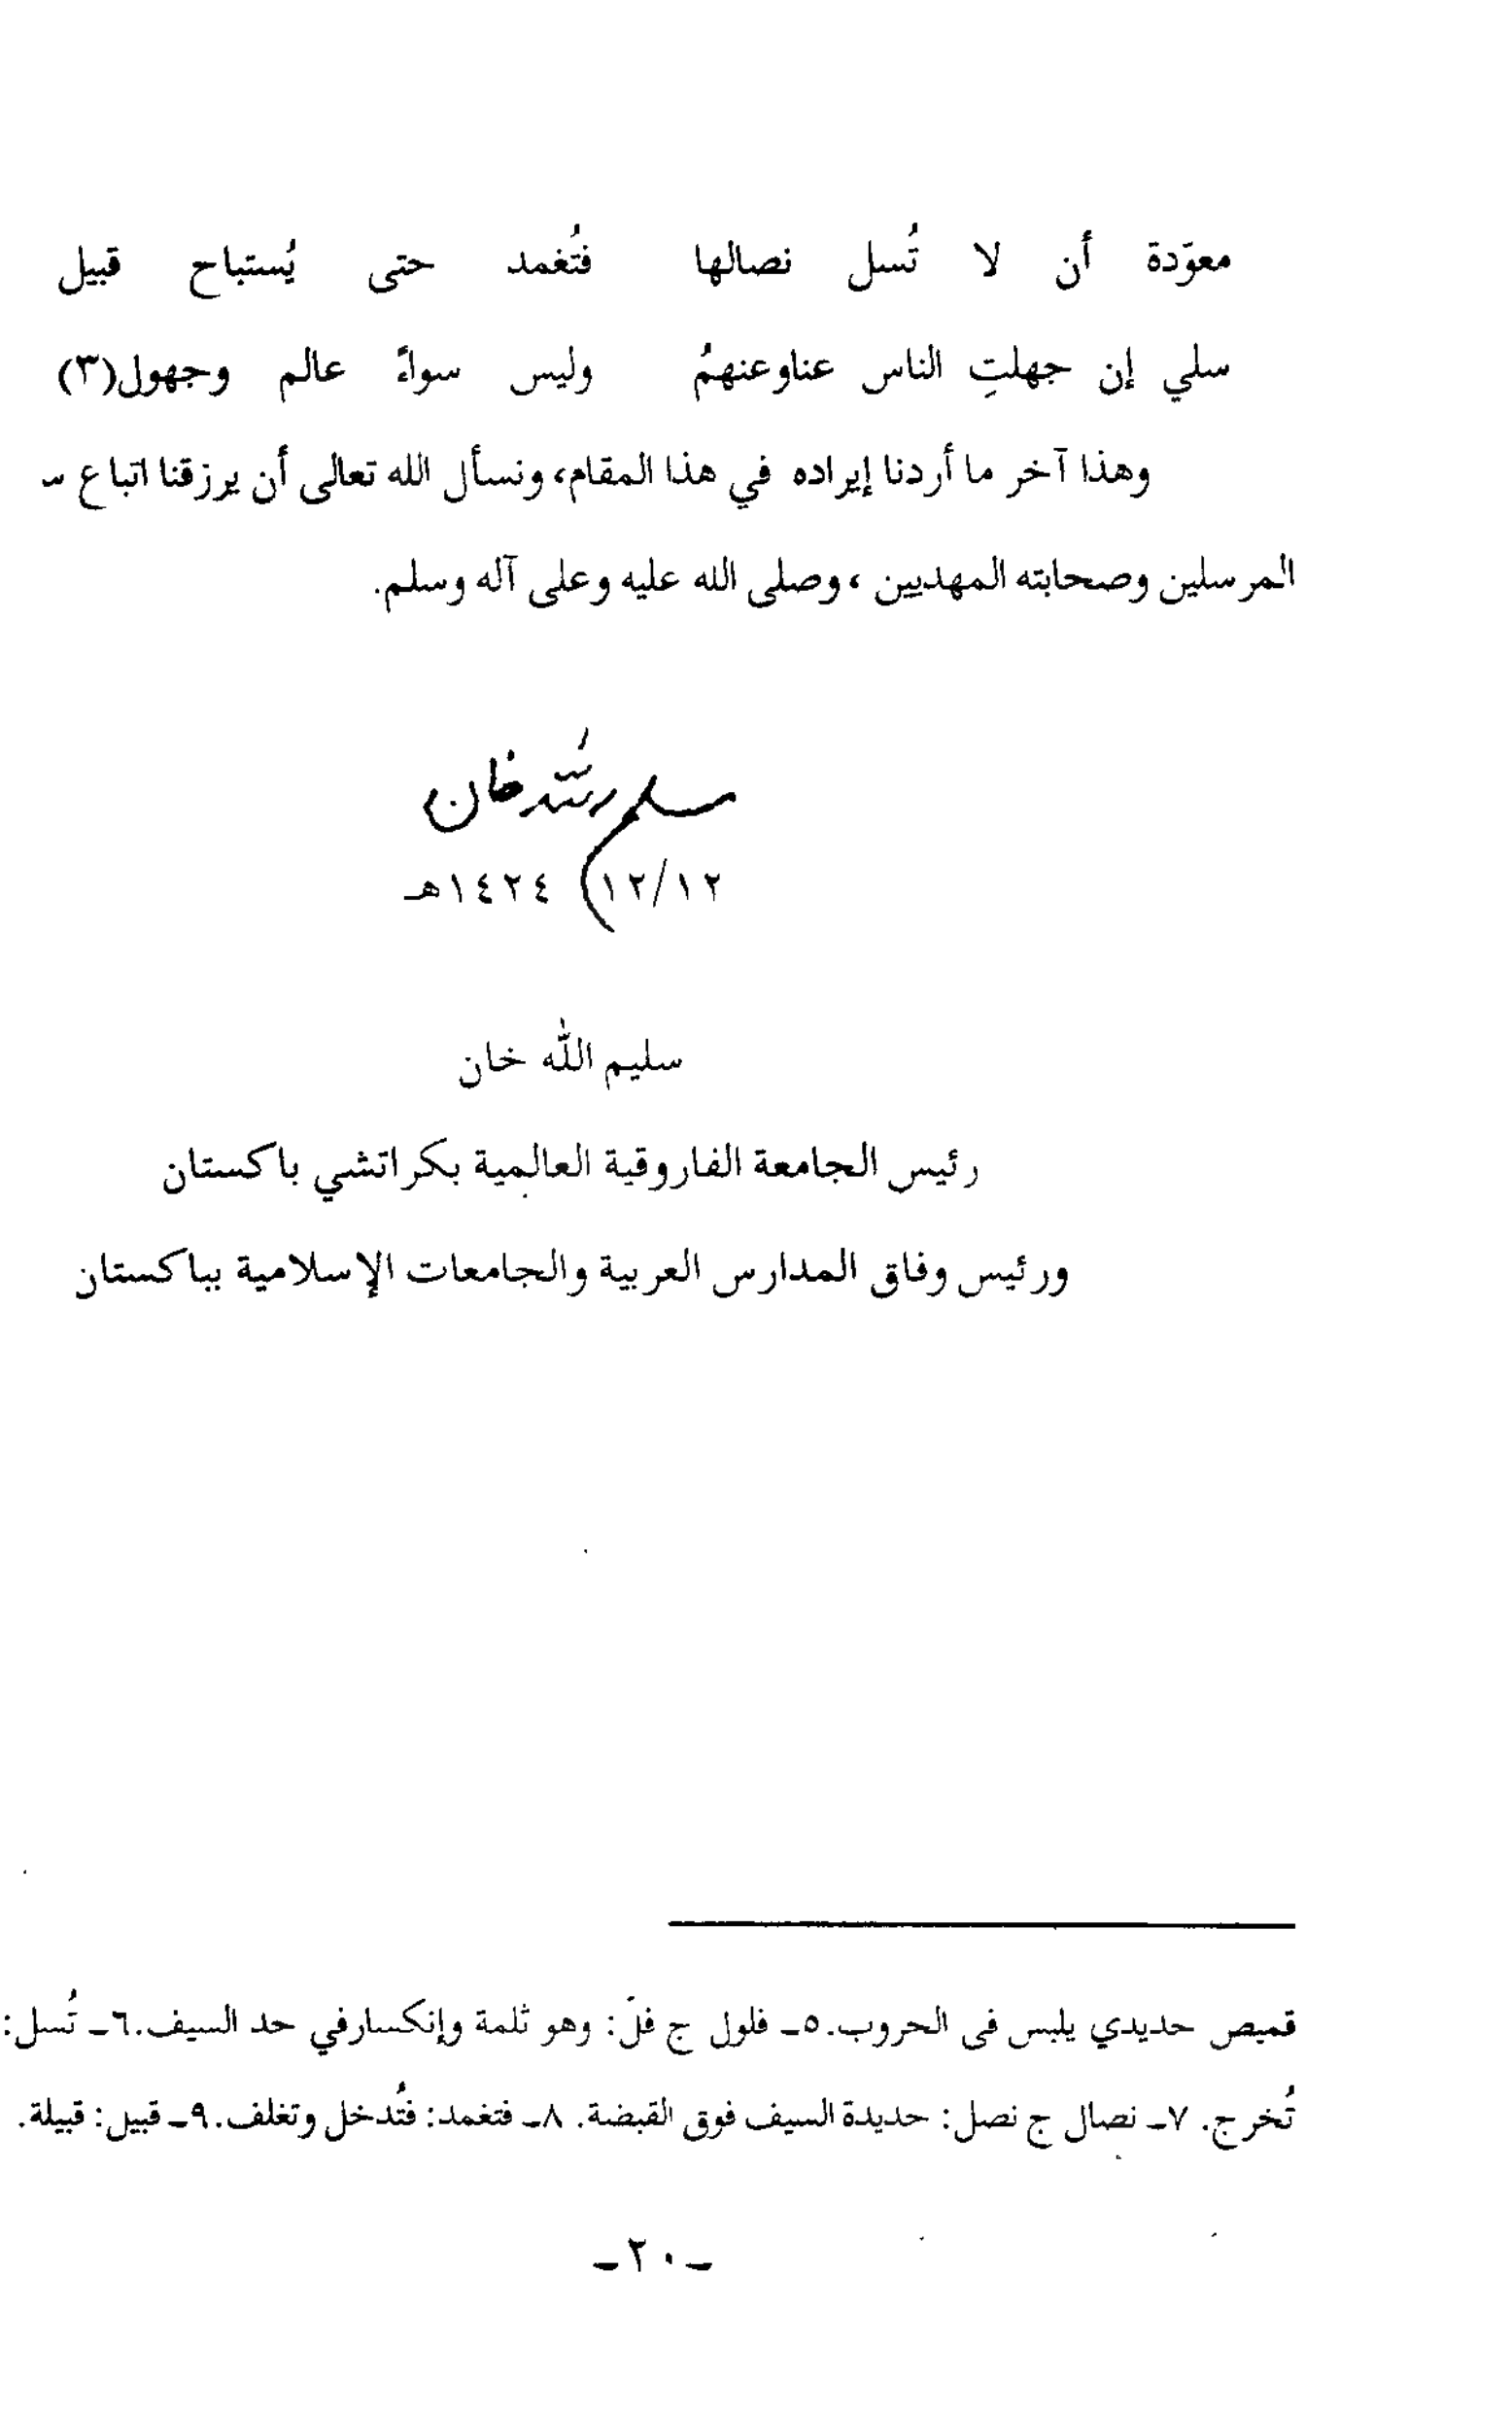 معوّدة أن لا تُسل نصالها فتُغمد حتى يُستباح قبيل
سلي إن جهلتِ الناس عناوعنهمُ وليس سواءً عالم وجهول(٣)
وهذا آخر ما أردنا إيراده في هذا المقام، ونسأل الله تعالى أن يرزقنا اتباع
المرسلين وصحابته المهديين ، وصلى الله عليه وعلى آله وسلم.
١٢/١٢ ١٤٢٤هـ
سليم الله خان
رئيس الجامعة الفاروقية العالمية بكراتشي باكستان
ورئيس وفاق المدارس العربية والجامعات الإسلامية بباكستان
قميص حديدي يلبس فى الحروب.٥ـ فلول ج فلّ: وهو ثلمة وإنكسارفي حد السيف.٦ـ تُسل:
تُخرج. ٧ـ نصال ج نصل: حديدة السيف فوق القبضة. ٨ـ فتغمد: فتُدخل وتغلف.٩ـ قبيل: قبيلة.
ـ٢٠ـ